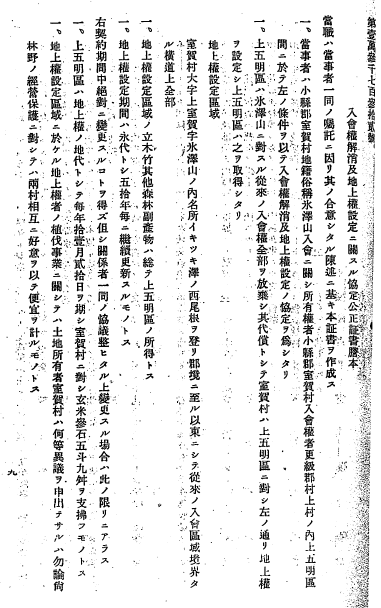 第壹萬參千七百參拾貳號
入會權解消及地上權設定ニ關スル協定公正証書謄本
當職ハ當事者一同ノ囑託ニ因リ其ノ合意シタル陳述ニ基キ本証書ヲ作成ス
一。當事者ハ小縣郡室賀村地籍俗稱氷澤山入會ニ關シ所有權者小縣郡室賀村入會權者更級郡村上村ノ內上五明區
間ニ於テ左ノ條件ヲ以テ入會權解消及地上權設定ノ協定ヲ爲シタリ
一。上五明區ハ氷澤山ニ對スル從來ノ入會權全部ヲ放棄シ其代償トシテ室賀村ハ上五明區ニ對シ左ノ通リ地上權
ヲ設定シ上五明區ハ之ヲ取得シタリ
地上權區域
室賀村大字上室賀字氷澤山ノ內名所イキツキ澤ノ西尾根ヲ登リ郡境ニ至ル以東ニシテ從來ノ入會區域境界タ
ル橫道上全部
一。地上權設定區域ノ立木竹其他森林副產物ハ總テ上五明區ノ所得トス
一。地上權設定期間ハ永代トシ五拾年每ニ繼續更新スルモノトス
右契約期間中絕對ニ變更スルコトヲ得ズ但シ關係者一同ノ協議整ヒタル上變更スル場合ハ此ノ限リニアラス
一。上五明區ハ地上權ノ地代トシテ每年拾壹月貳拾日ヲ期シ室賀村ニ對シ玄米參石五斗九舛ヲ支拂フモノトス
一。地上權設定區域ニ於ケル地上權者ノ植伐事業ニ關シテハ土地所有者室賀村ハ何等異議ヲ申出テサルハ勿論尙
林野ノ經營保護ニ對シテハ兩村相互ニ好意ヲ以テ便宜ヲ計ルモノトス
九